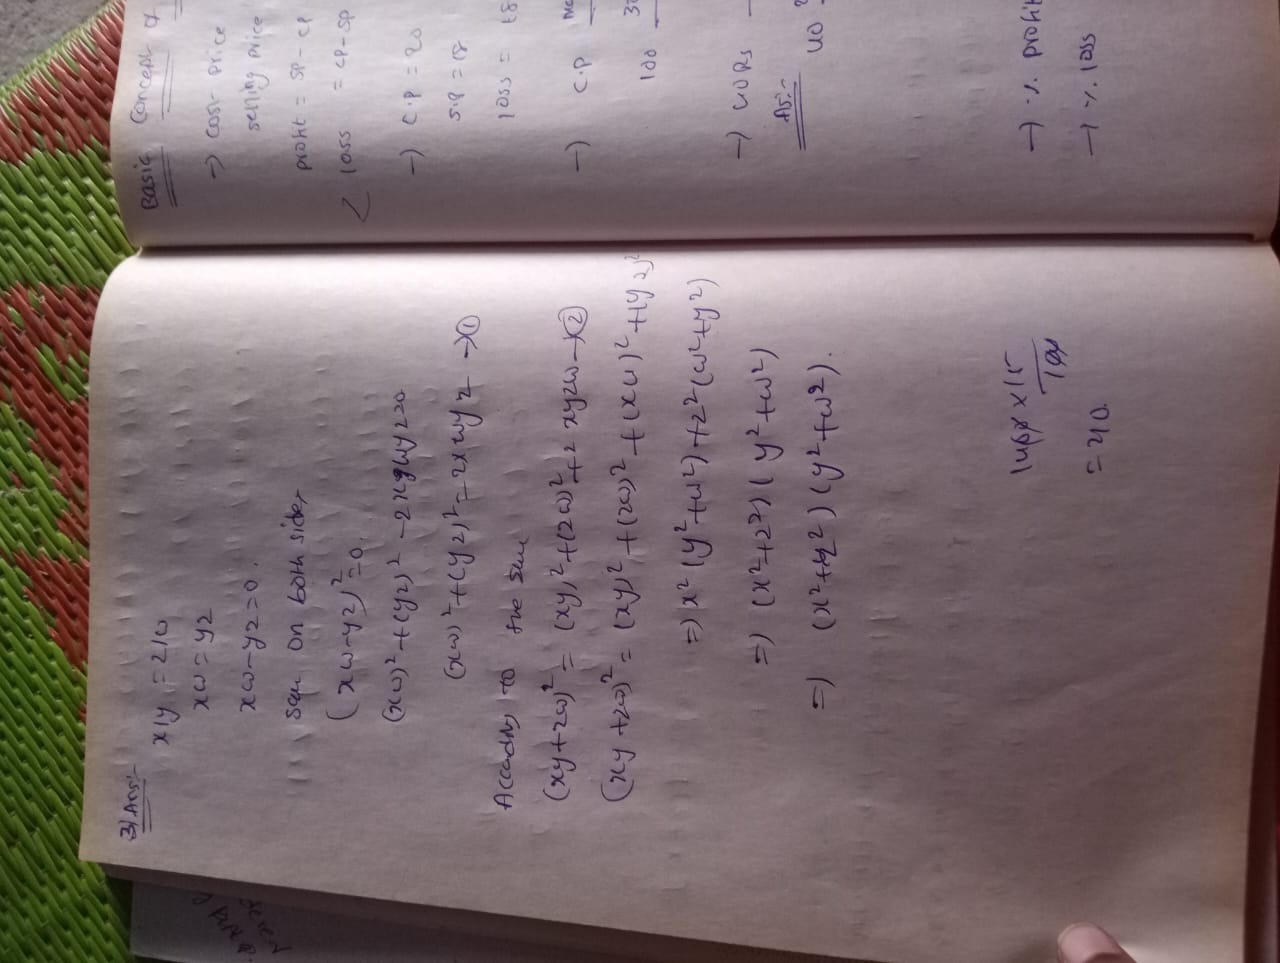 3) Ans:-
x/y = z/w
xw = yz
xw-yz=0.
on both sides,
(xw-yz)²=0.
(xw)²+(yz)² -2xzwy=0
(xw)²+(yz)²=2xwyz →①
According to the sum
(xy+zw)² = (xy)²+(zw)²+2xyzw→②
(xy+zw)² = (xy)²+(zw)²+(xw)²+(yz)²
=) x²(y²+w²)+z²(w²+y²)
=) (x²+z²)(y²+w²)
=) (x²+z²)(y²+w²).
= 210.
Basic Concept
→ Cost price
selling price
profit = SP-CP
loss = CP-SP
→) C.P = 20
S.P = 18
loss =
→) C.P
100
→) 40Rs
As:-
40
→ % profit
→ % loss